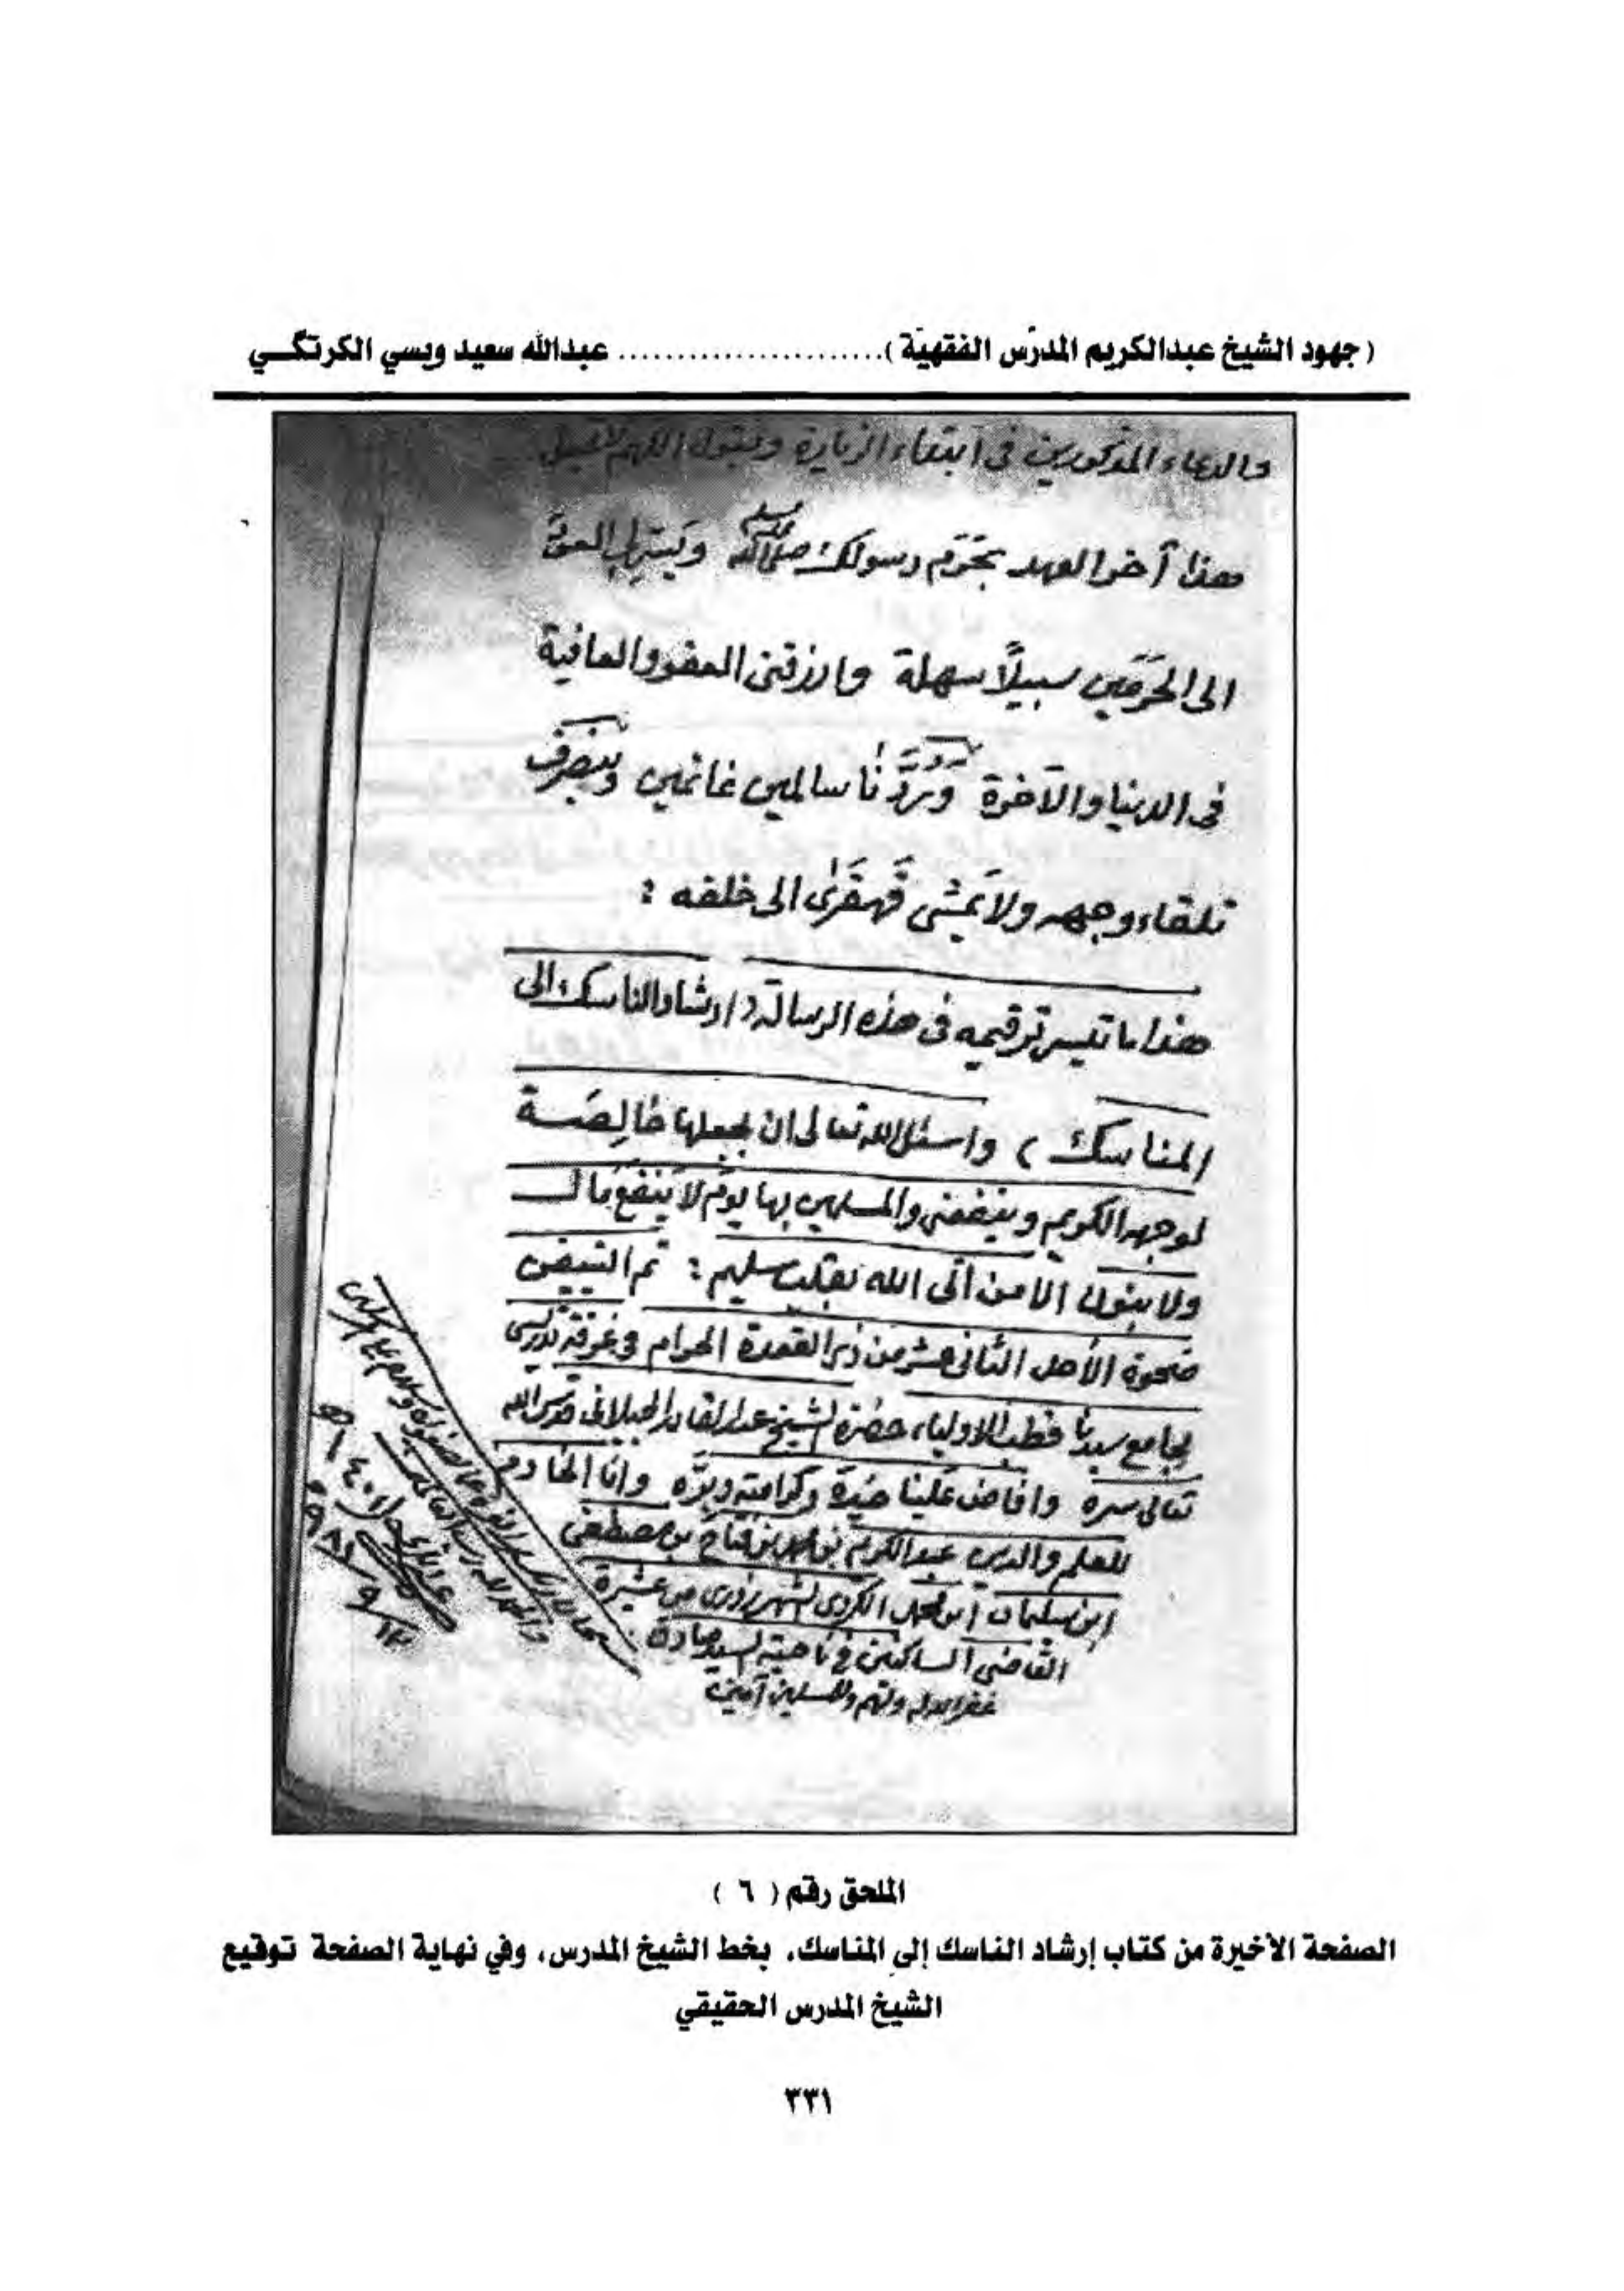 ( جهود الشيخ عبدالكريم المدرّس الفقهيّة )....................... عبدالله سعيد ويسي الكرتگـــي
والدعاء المذكورين فى ابتداء الزيارة ويقول اللهم لا تجعل
هذا آخر العهد بحَرَم رسولك صلى الله عليه وسلم العودَ
الى الحَرَمَين سبيلاً سهلة وارزقنى العفو والعافية
فى الدنيا والآخرة وَرُدَّنا سالمين غانمين وَيَنصَرِف
تلقاء وجهه ولا يَمشى قَهقَرىٰ الى خلفه :
هذا ما تيسر ترقيمه فى هذه الرسالة ( ارشاد الناسك الى
المناسك ) واسئل الله تعالى ان يجعلها خالِصَـة
لوجهه الكريم وينفعنى والمسلمين بها يومَ لا يَنفَعُ مال
ولا بنون الا من اتى الله بقلب سليم : تم التبييض
ضحوة الأحد الثانى عشر من ذى القعدة الحرام فى غرفة تدريسى
بجامع سيدنا قطب الاولياء حضرة الشيخ عبدالقادر الجيلانى قدس الله
تعالى سره وافاض علينا خيره وكرامته وبرّه وانا الخادم
للعلم والدين عبدالكريم بن محمد بن فتاح بن مصطفى
ابن سليمان ابن محمد الكردى الشهرزورى من عشيرة
القاضى الساكنين فى ناحية السيد صادق
غفر الله له ولهم وللمسلمين آمين
سبحان ربك رب العزة عما يصفون وسلام على المرسلين
والحمد لله رب العالمين
١٤٠١
٩٨١
٩/١٢
الملحق رقم ( ٦ )
الصفحة الأخيرة من كتاب إرشاد الناسك إلى المناسك، بخط الشيخ المدرس، وفي نهاية الصفحة توقيع
الشيخ المدرس الحقيقي
٣٣١